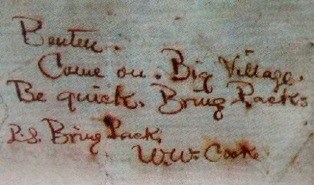 Benteen.
Come on. Big Village.
Be quick. Bring Packs
P.S. Bring Pack.
W.W. Cooke